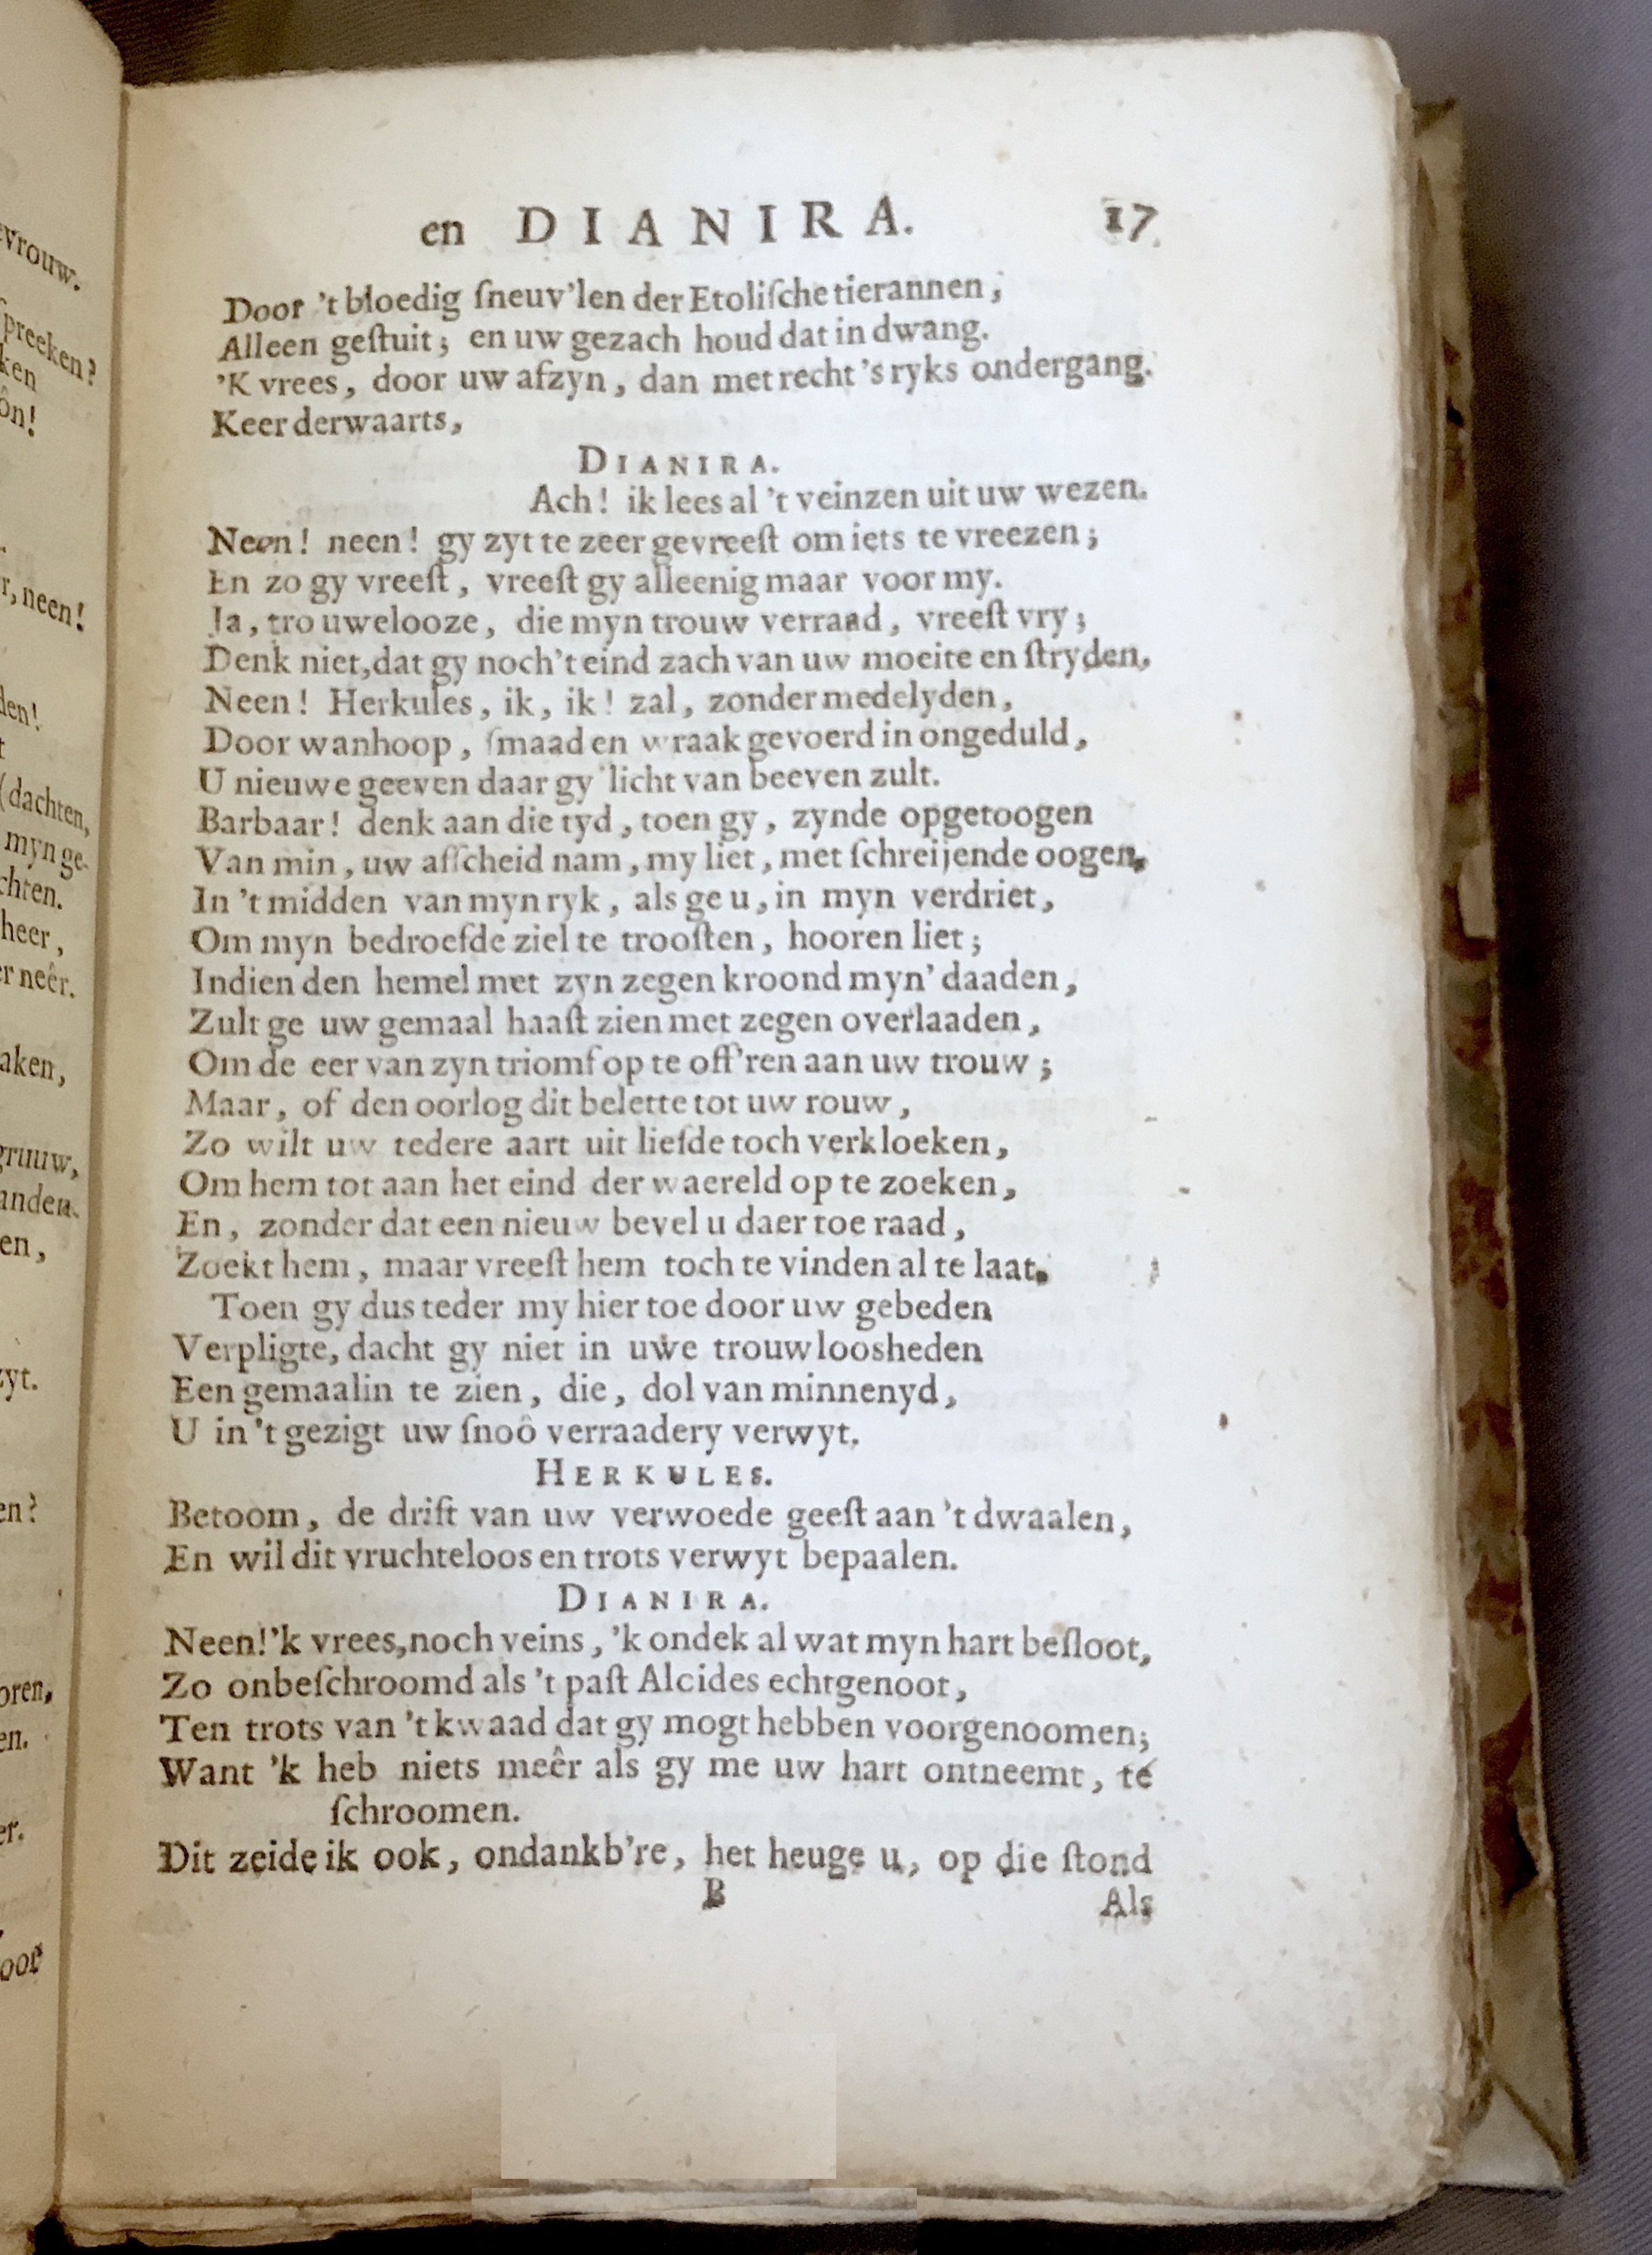 en DIANIRA. 17
Door 't bloedig ſneuv'len der Etoliſche tierannen,
Alleen geſtuit; en uw gezach houd dat in dwang.
'K vrees, door uw afzyn, dan met recht 's ryks ondergang.
Keer derwaarts,
DIANIRA.
Ach! ik lees al 't veinzen uit uw wezen.
Neen! neen! gy zyt te zeer gevreeſt om iets te vreezen;
En zo gy vreeſt, vreeſt gy alleenig maar voor my.
Ja, trouwelooze, die myn trouw verraad, vreeſt vry;
Denk niet, dat gy noch 't eind zach van uw moeite en ſtryden,
Neen! Herkules, ik, ik! zal, zonder medelyden,
Door wanhoop, ſmaad en wraak gevoerd in ongeduld,
U nieuwe geeven daar gy licht van beeven zult.
Barbaar! denk aan die tyd, toen gy, zynde opgetoogen
Van min, uw afſcheid nam, my liet, met ſchreijende oogen,
In 't midden van myn ryk, als ge u, in myn verdriet,
Om myn bedroefde ziel te trooſten, hooren liet;
Indien den hemel met zyn zegen kroond myn' daaden,
Zult ge uw gemaal haaſt zien met zegen overlaaden,
Om de eer van zyn triomf op te off'ren aan uw trouw;
Maar, of den oorlog dit belette tot uw rouw,
Zo wilt uw tedere aart uit liefde toch verkloeken,
Om hem tot aan het eind der waereld op te zoeken,
En, zonder dat een nieuw bevel u daer toe raad,
Zoekt hem, maar vreeſt hem toch te vinden al te laat.
Toen gy dus teder my hier toe door uw gebeden
Verpligte, dacht gy niet in uwe trouwloosheden
Een gemaalin te zien, die, dol van minnenyd,
U in 't gezigt uw ſnoô verraadery verwyt.
HERKULES.
Betoom, de drift van uw verwoede geeſt aan 't dwaalen,
En wil dit vruchteloos en trots verwyt bepaalen.
DIANIRA.
Neen! 'k vrees, noch veins, 'k ondek al wat myn hart beſloot,
Zo onbeſchroomd als 't paſt Alcides echtgenoot,
Ten trots van 't kwaad dat gy mogt hebben voorgenoomen;
Want 'k heb niets meêr als gy me uw hart ontneemt, te
ſchroomen.
Dit zeide ik ook, ondankb're, het heuge u, op die ſtond
B Als